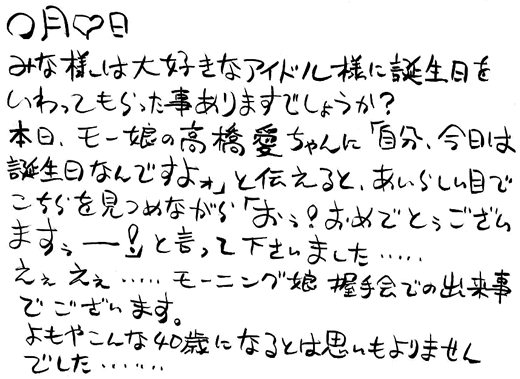 ○月♡日
みな様は大好きなアイドル様に誕生日を
いわってもらった事ありますでしょうか?
本日、モー娘の高橋愛ちゃんに「自分、今日は
誕生日なんですよォ」と伝えると、あいらしい目で
こちらを見つめながら「おぅ!おめでとうござい
ますぅー!」と言って下さいました‥‥‥
えぇ えぇ‥‥‥モーニング娘 握手会での出来事
でございます。
よもやこんな40歳になるとは思いもよりません
でした‥‥‥‥